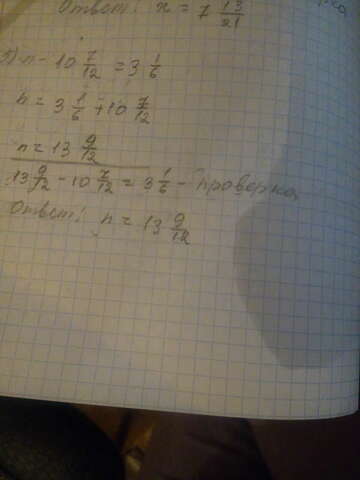 Ответ: x = 7 13/21
5) n - 10 7/12 = 3 1/6
n = 3 1/6 + 10 7/12
n = 13 9/12
13 9/12 - 10 7/12 = 3 1/6 - проверка
Ответ: n = 13 9/12